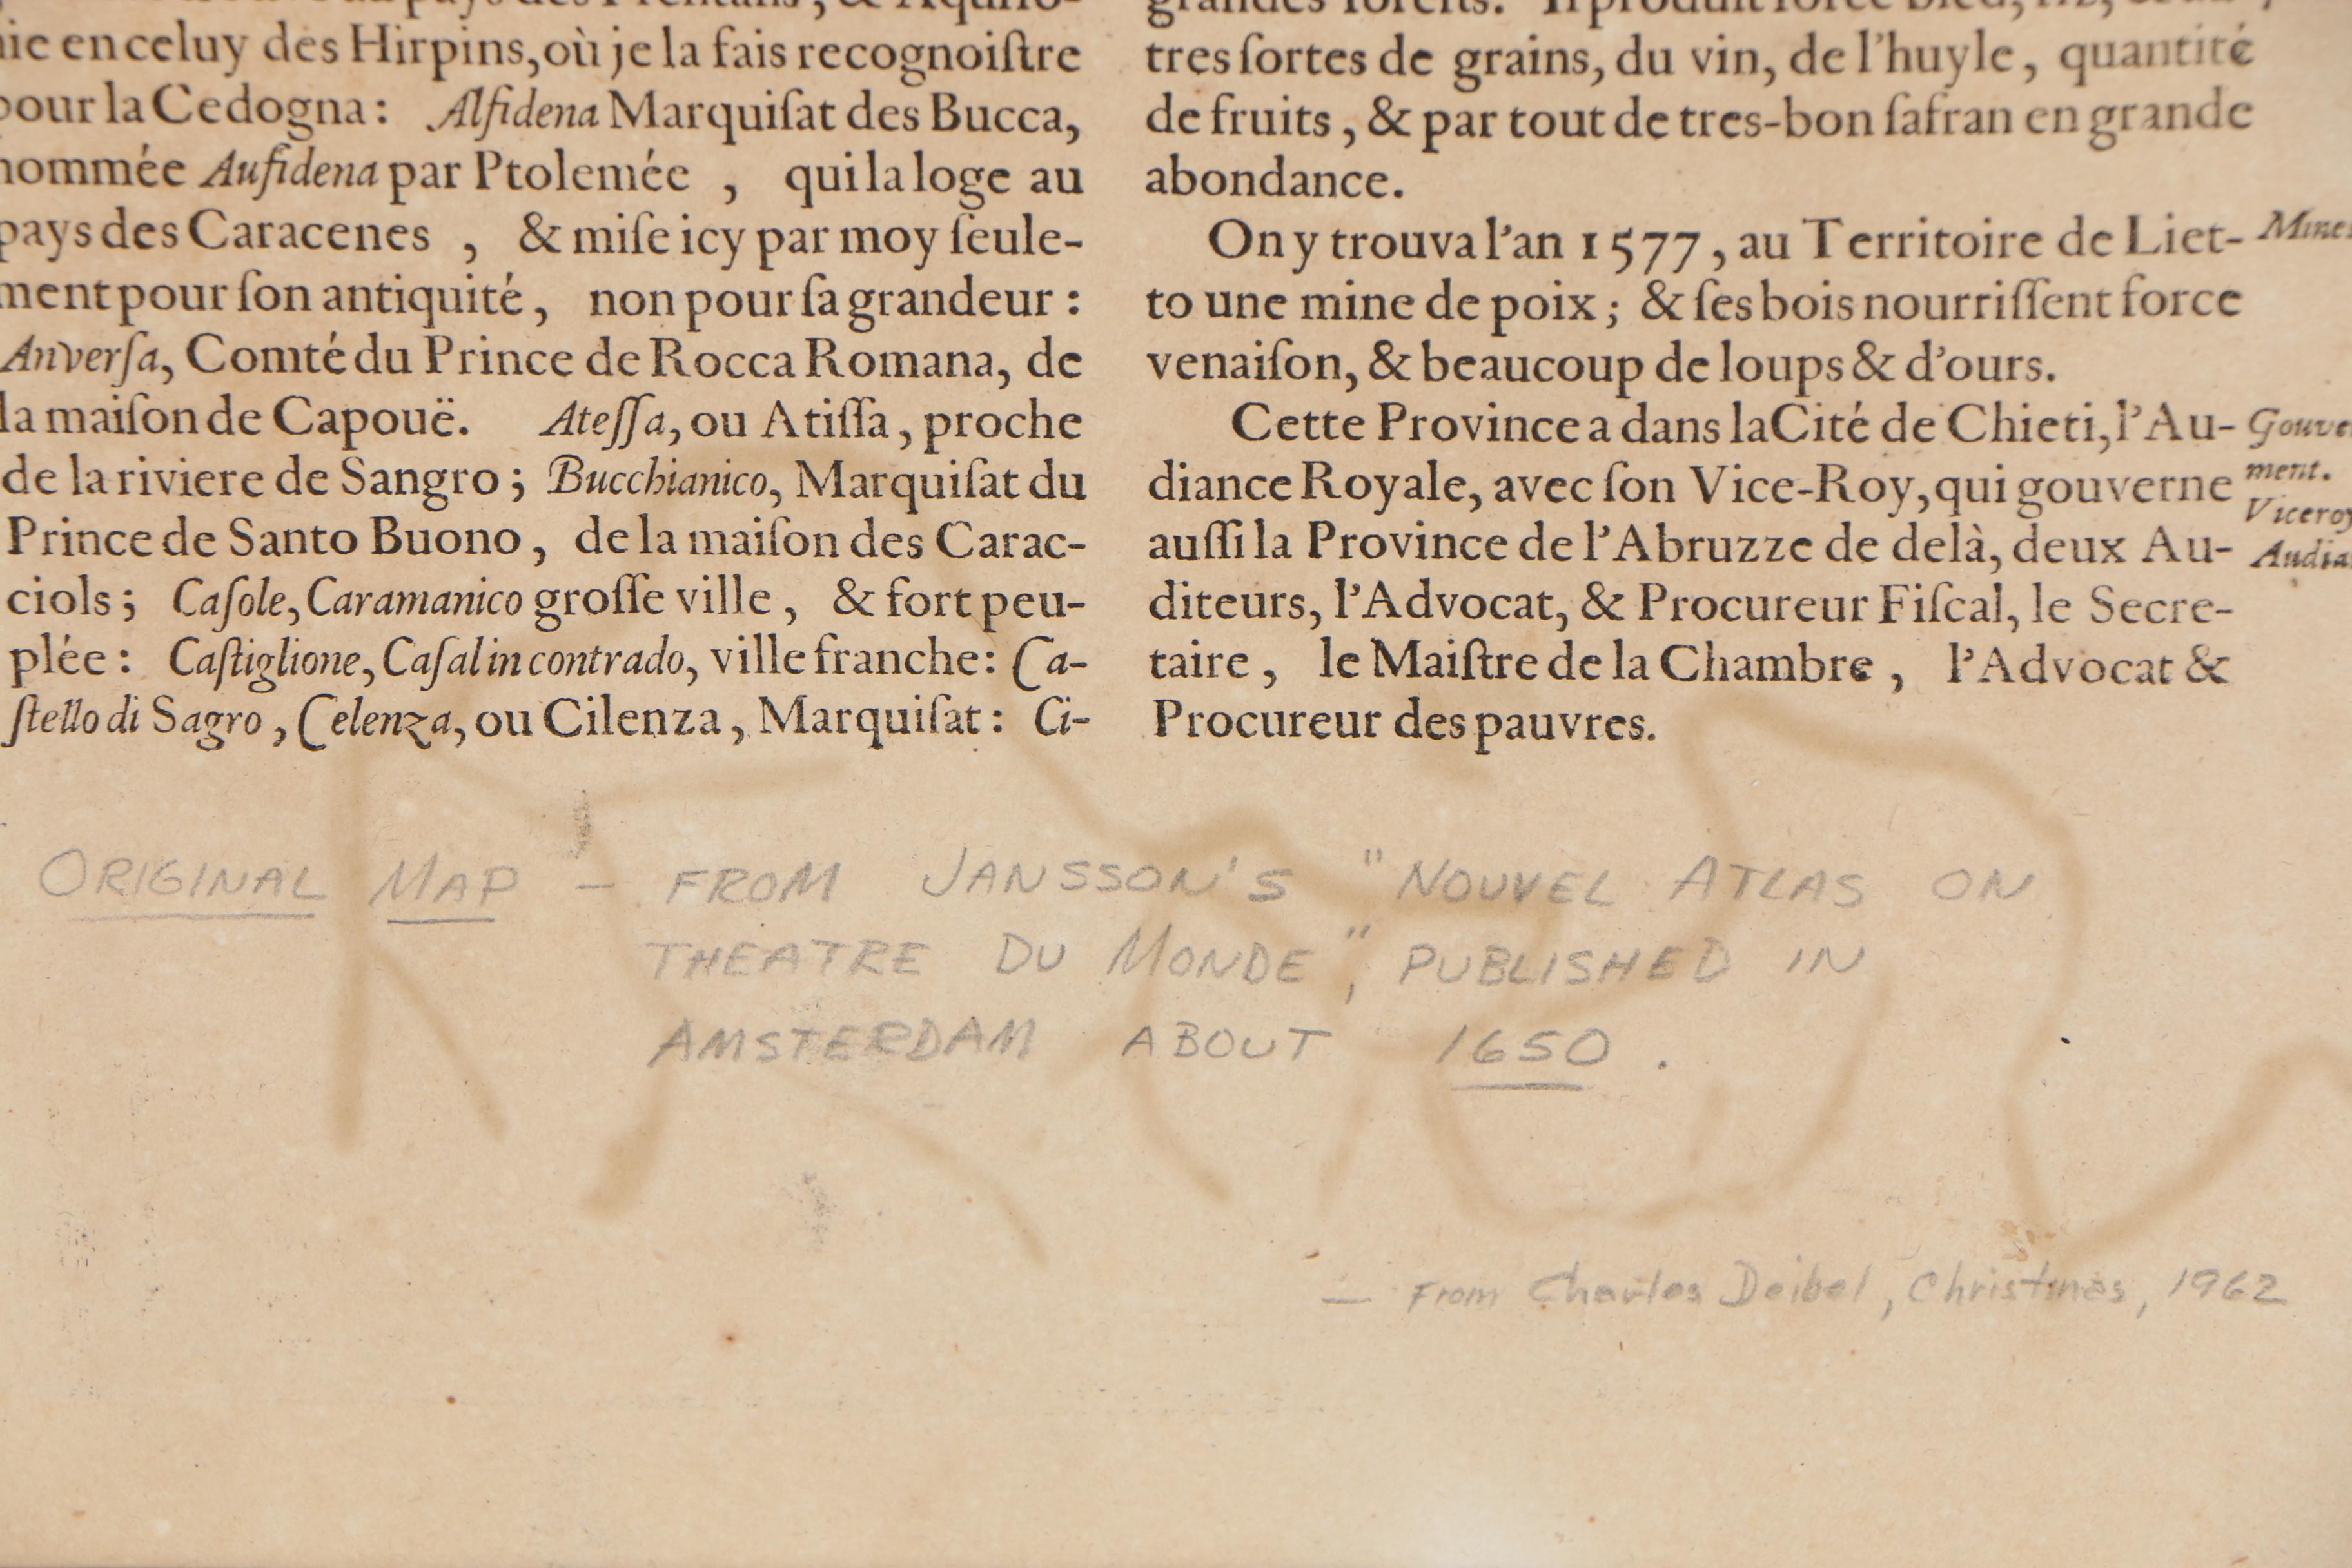 en celuy des Hirpins, où je la fais recognoiſtre
pour la Cedogna: Alfidena Marquiſat des Bucca,
nommée Aufidena par Ptolemée , qui la loge au
pays des Caracenes , & miſe icy par moy ſeule-
ment pour ſon antiquité, non pour ſa grandeur :
Anverſa, Comté du Prince de Rocca Romana, de
la maiſon de Capouë. Ateſſa, ou Atiſſa, proche
de la riviere de Sangro ; Bucchianico, Marquiſat du
Prince de Santo Buono, de la maiſon des Carac-
ciols ; Caſole, Caramanico groſſe ville , & fort peu-
plée : Caſtiglione, Caſal in contrado, ville franche: Ca-
ſtello di Sagro , Celenza, ou Cilenza, Marquiſat : Ci-
tres ſortes de grains, du vin, de l'huyle, quantité
de fruits, & par tout de tres-bon ſafran en grande
abondance.
On y trouva l'an 1577, au Territoire de Liet-
to une mine de poix ; & ſes bois nourriſſent force
venaiſon, & beaucoup de loups & d'ours.
Cette Province a dans la Cité de Chieti, l'Au-
diance Royale, avec ſon Vice-Roy, qui gouverne
auſſi la Province de l'Abruzze de delà, deux Au-
diteurs, l'Advocat, & Procureur Fiſcal, le Secre-
taire , le Maiſtre de la Chambre , l'Advocat &
Procureur des pauvres.
Mine
Gouve
ment.
Viceroy
Audia
ORIGINAL MAP – FROM JANSSON'S "NOUVEL ATLAS ON
THEATRE DU MONDE", PUBLISHED IN
AMSTERDAM ABOUT 1650 .
— From Charles Deibel, Christmas, 1962